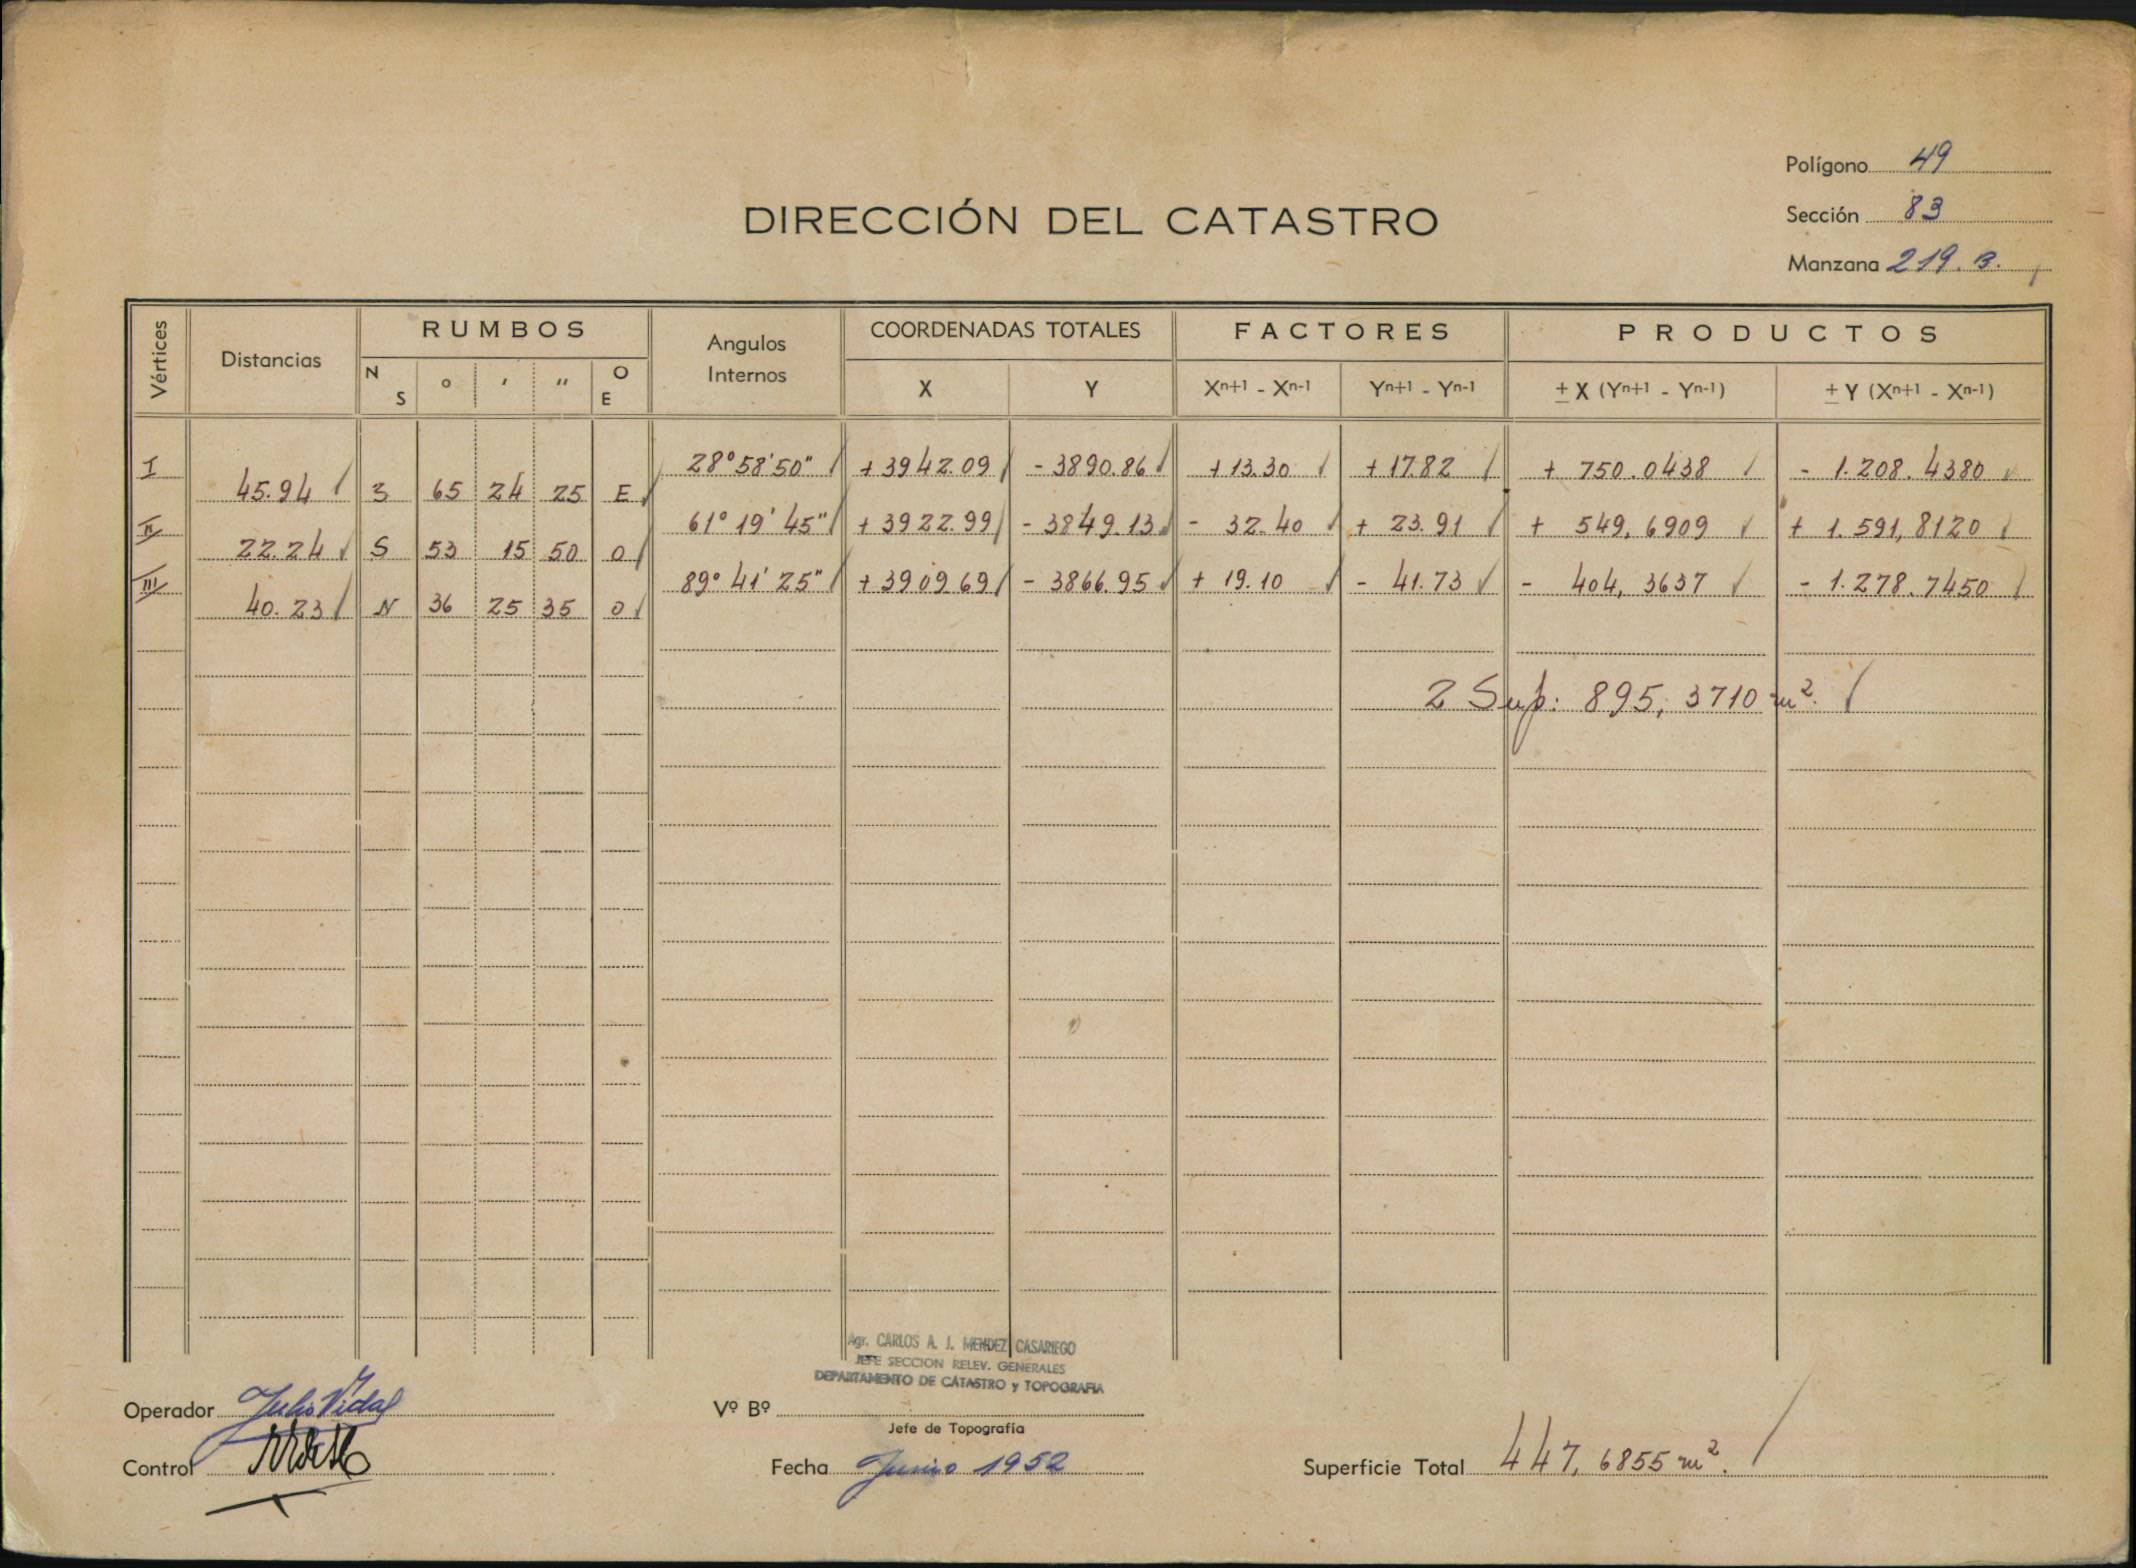 Polígono 49
DIRECCIÓN DEL CATASTRO
Sección 83
Manzana 219. B.
Vértices Distancias RUMBOS Angulos Internos COORDENADAS TOTALES FACTORES PRODUCTOS
N S ° ' " O E X Y Xn+1 - Xn-1 Yn+1 - Yn-1 ± X (Yn+1 - Yn-1) ± Y (Xn+1 - Xn-1)
I 28° 58' 50" + 3942.09 - 3890.86 + 13.30 + 17.82 + 750.0438 - 1.208.4380
45.94 S 65 24 25 E
II 61° 19' 45" + 3922.99 - 3849.13 - 32.40 + 23.91 + 549,6909 + 1.591,8120
22.24 S 53 15 50 O
III 89° 41' 25" + 3909.69 - 3866.95 + 19.10 - 41.73 - 404,3637 - 1.278.7450
40.23 N 36 25 35 O
2 Sup: 895,3710 m².
Agr. CARLOS A. J. MENDEZ CASARIEGO
JEFE SECCION RELEV. GENERALES
DEPARTAMENTO DE CATASTRO y TOPOGRAFIA
Operador Julio Vidal Vº Bº
Jefe de Topografía
Control Fecha Junio 1952 Superficie Total 447,6855 m².